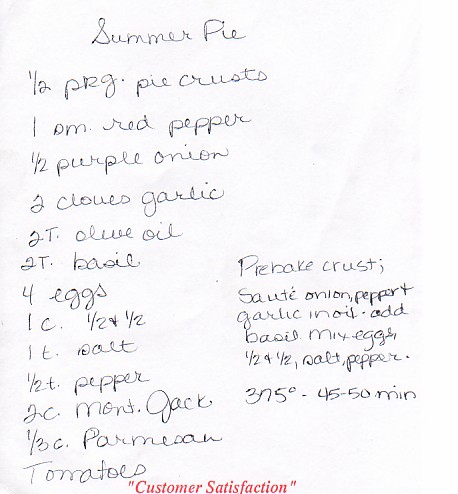 Summer Pie
1/2 pkg. pie crusts
1 sm. red pepper
1/2 purple onion
2 cloves garlic
2T. olive oil
2T. basil
4 eggs
1 c. 1/2 & 1/2
1 t. salt
1/2 t. pepper
2c. Mont. Jack
1/3 c. Parmesan
Tomatoes
Prebake crust;
Sauté onion, pepper &
garlic in oil. add
basil. Mix eggs,
1/2 & 1/2, salt, pepper.
375° - 45-50 min
"Customer Satisfaction"